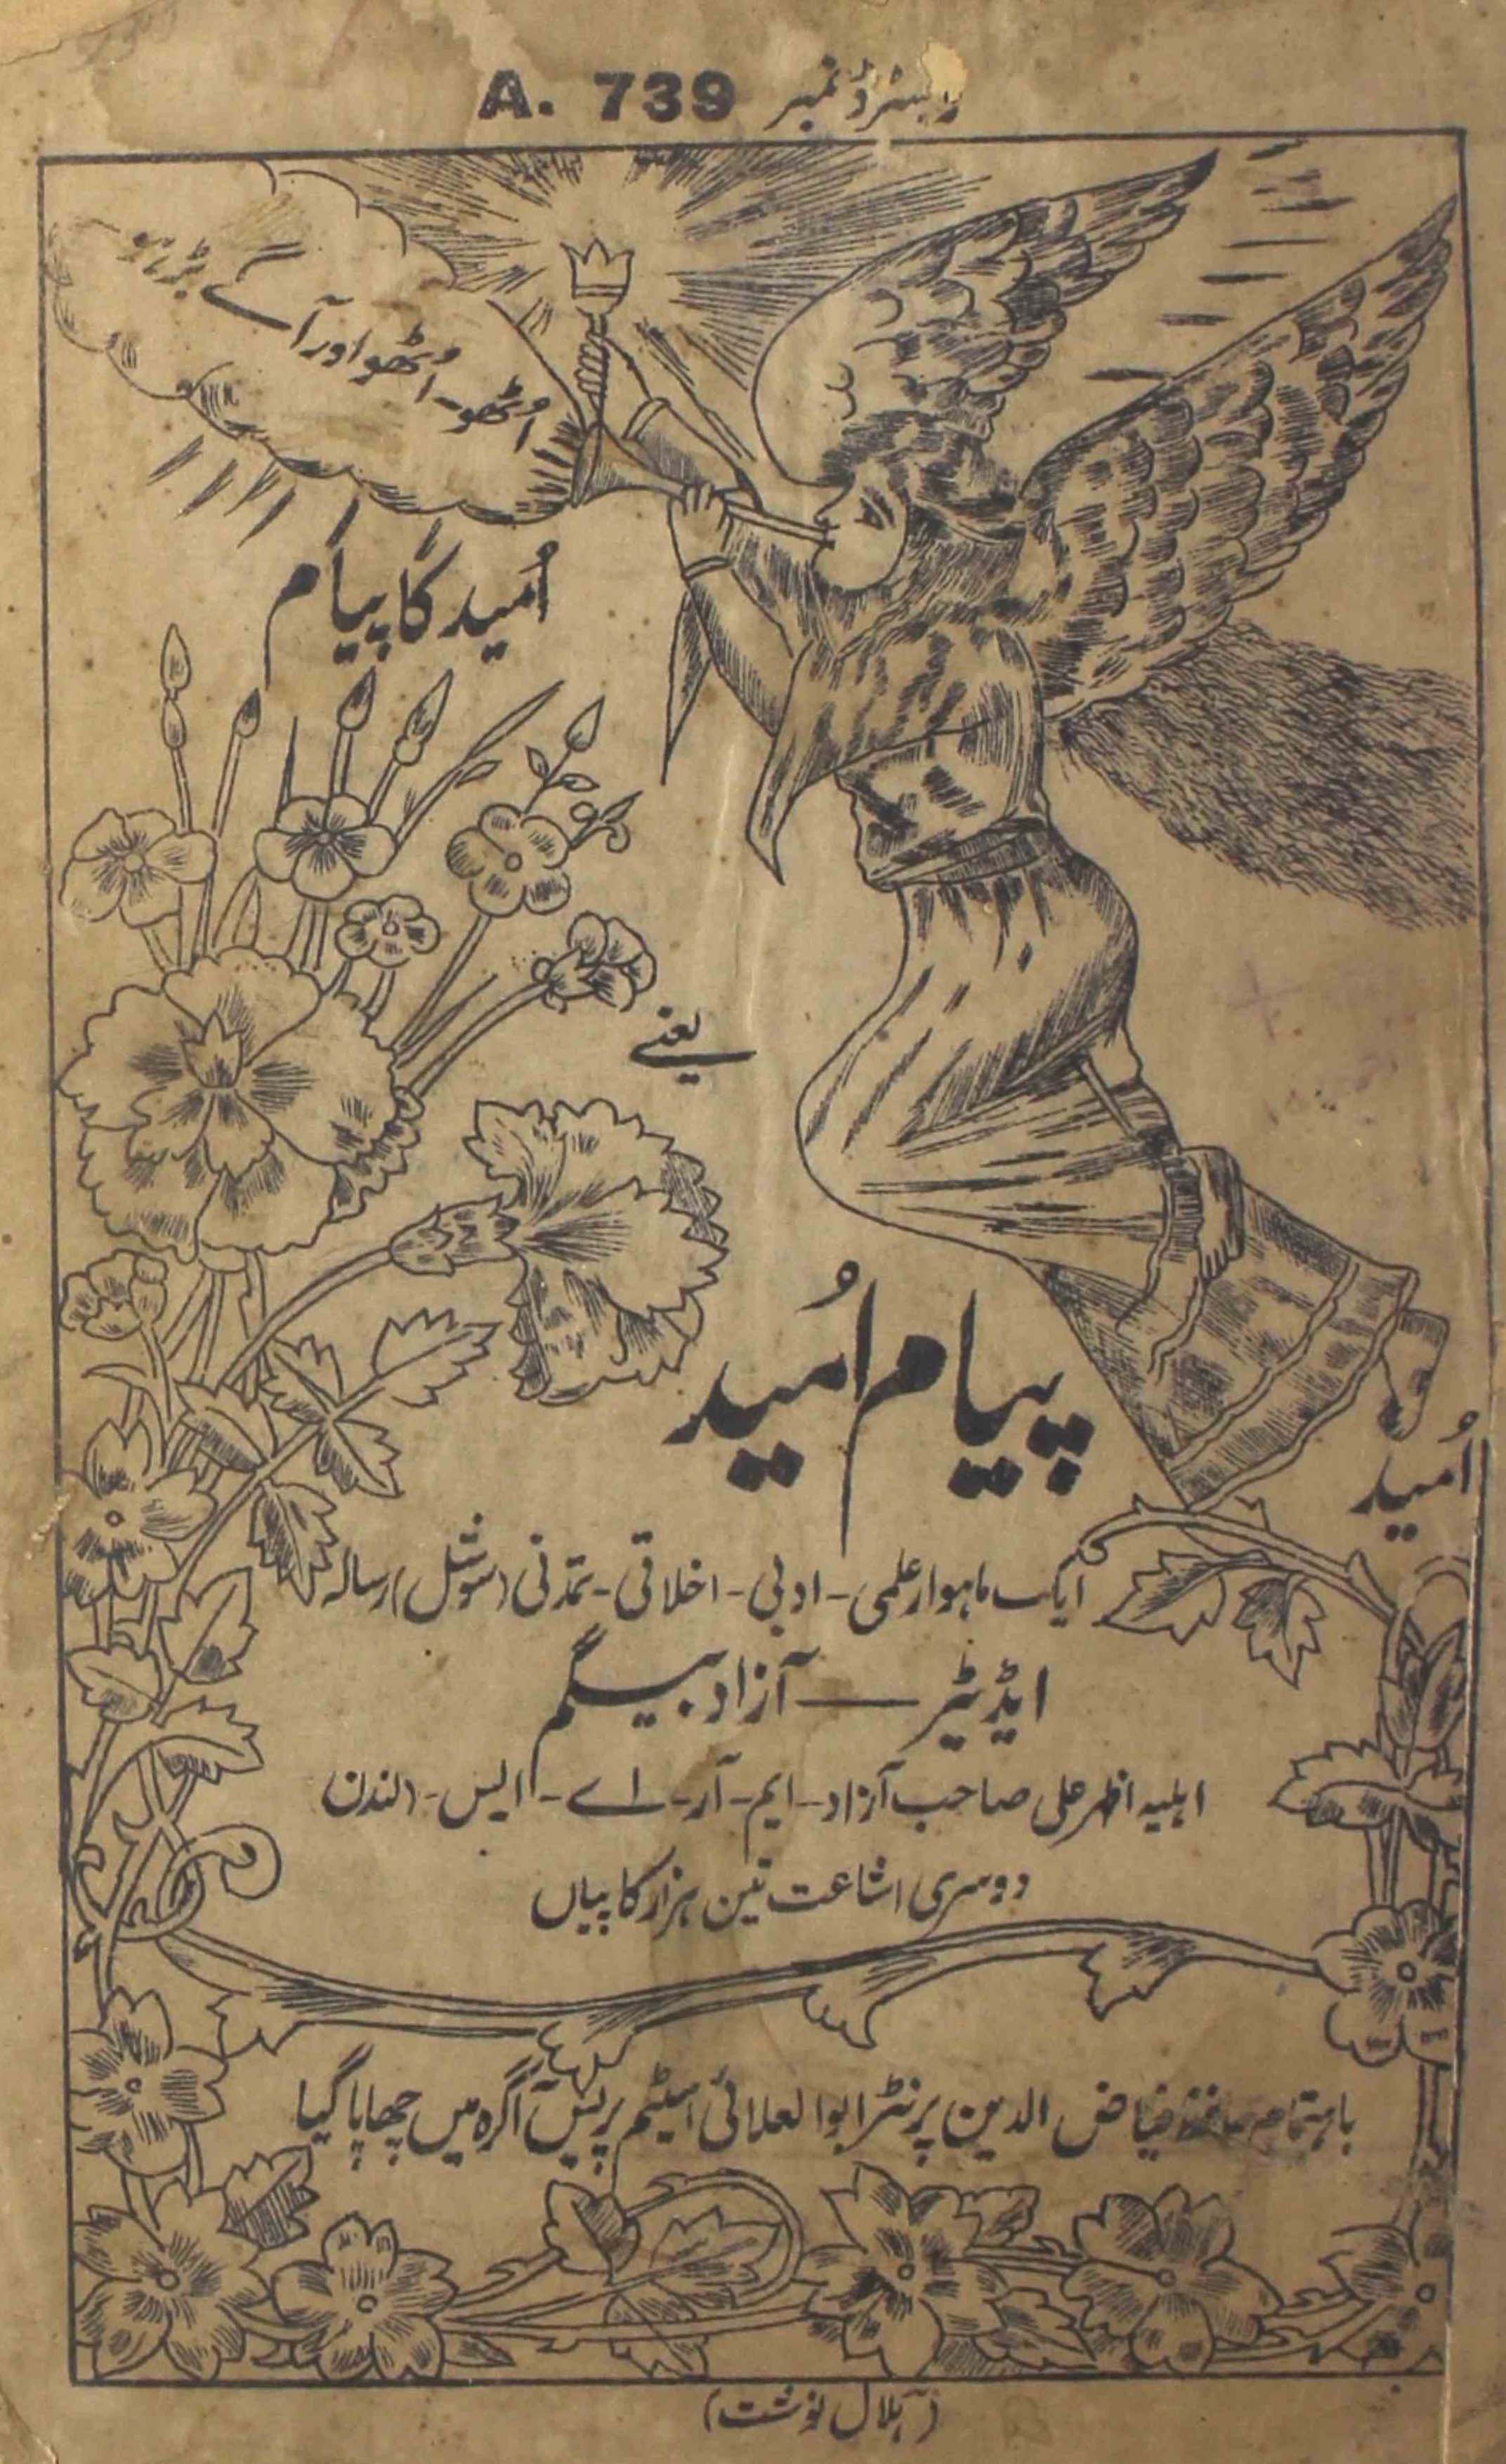 رجسٹرڈ نمبر A. 739
اُٹھو۔ اُٹھو اور آگے بڑہو
اُمید کا پیام
یعنے
پیام اُمید
اُمید
ایک ماہوار علمی - ادبی - اخلاقی - تمدنی (سوشل) رسالہ
ایڈیٹر — آزاد بیگم
اہلیہ اظہر علی صاحب آزاد - ایم - آر - اے - ایس - (لندن
دوسری اشاعت تین ہزار کاپیاں
باہتمام حافظ فیاض الدین پرنٹر ابوالعلائی اسٹیم پریس آگرہ میں چھاپا گیا
(ہلال نوشت)